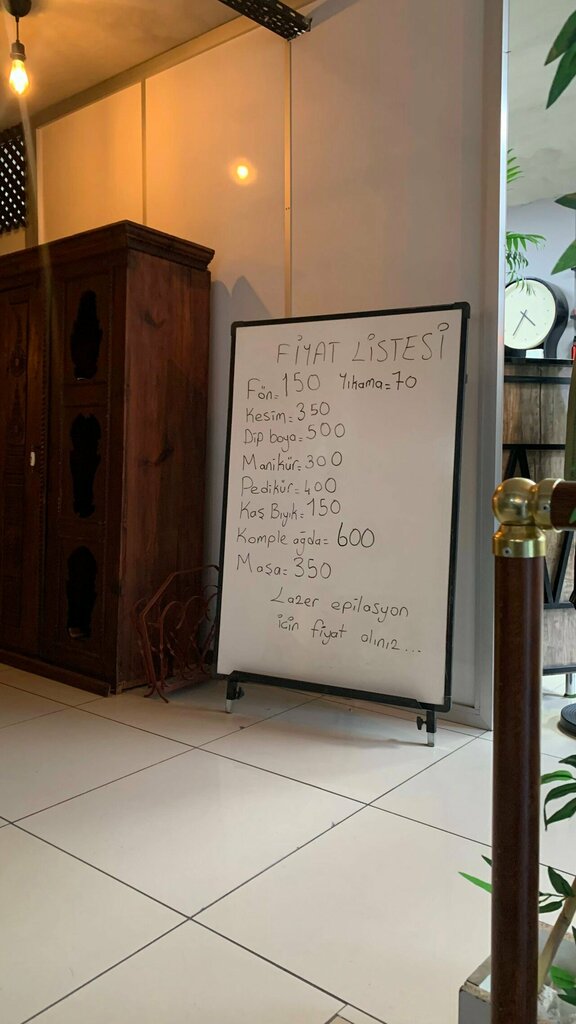 FİYAT LİSTESİ
Fön=150 Yıkama=70
Kesim=350
Dip boya=500
Manikür=300
Pedikür=400
Kaş Bıyık=150
Komple ağda=600
Maşa=350
Lazer epilasyon
için fiyat alınız...